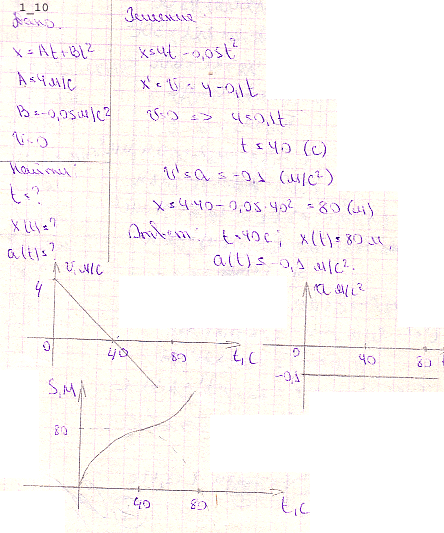 1_10
Дано.
x=At+Bt²
A=4м/с
B=-0,05м/с²
v=0
Найти:
t=?
x(t)=?
a(t)=?
Решение.
x=4t-0,05t²
x'=v=4-0,1t
v=0 => 4=0,1t
t=40 (с)
v'=a=-0,1 (м/с²)
x=4·40-0,05·40²=80 (м)
Ответ: t=40с; x(t)=80 м,
a(t)=-0,1 м/с².
v, м/с
4
0
40
80
t, с
a м/с²
0
40
80
-0,1
S, м
80
40
80
t, с